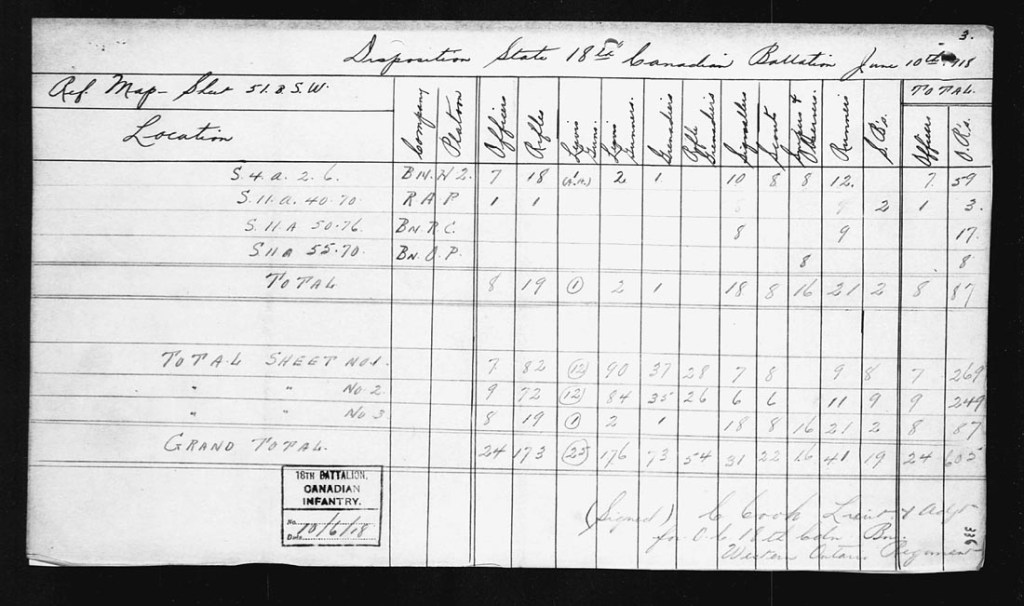 3.
Disposition State 18th Canadian Battalion June 10th 1918
Ref. Map - Sheet 51.B.S.W.
TOTAL
Location Company Platoon Officers Rifles Lewis Guns. Lewis Gunners. Grenadiers Rifle Grenadiers Signallers Scouts Snipers & Observers. Runners S.B's. Officers O.R's.
S.4.a.2.6. BN.H.Q. 7 18 2 1 10 8 8 12. 7. 59
S.11.a.40.70 R A P 1 1 2 1 3.
S.11.A 50.76. BN.R.C. 8 9 17.
S11a 55.70. BN.O.P. 8 8
TOTAL 8 19 1 2 1 18 8 16 21 2 8 87
TOTAL SHEET NO1. 7 82 12 90 37 28 7 8 9 8 7 269
" " No 2 9 72 12 84 35 26 6 6 11 9 9 249
" " No 3 8 19 1 2 1 18 8 16 21 2 8 87
GRAND TOTAL. 24 173 25 176 73 54 31 22 16 41 19 24 605
18TH BATTALION,
CANADIAN
INFANTRY.
No.
Date 10/6/18
(Signed) C Cook Lieut & Adjt
for O.C. 18th Cdn Bn.
Western Ontario Regiment
336